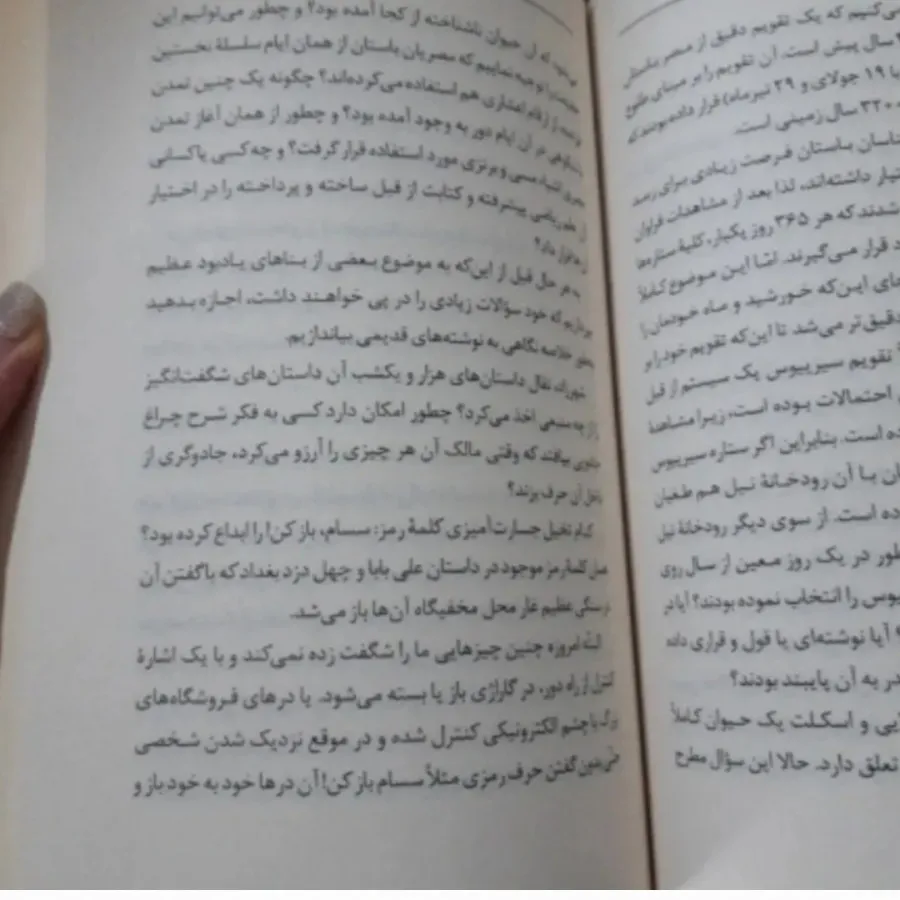 می‌کنیم که یک تقویم دقیق از عصر باستان
سال پیش است. آن تقویم را بر مبنای طلوع
با ۱۹ جولای و ۲۹ تیرماه) قرار داده بودند که
۳۲۰ سال زمینی است.
باستان فرصت زیادی برای رصد
داشته‌اند، لذا بعد از مشاهدات فراوان
شدند که هر ۳۶۵ روز یکبار، کلیهٔ ستاره‌ها
قرار می‌گیرند. امّا این موضوع کاملاً
این‌که خورشید و ماه خودمان را
دقیق‌تر می‌شد تا این‌که تقویم خود را بر
تقویم سیریوس یک سیستم از قبل
احتمالات بوده است، زیرا مشاهدهٔ
است. بنابراین اگر ستاره سیریوس
با آن رودخانهٔ نیل هم طغیان
است. از سوی دیگر رودخانهٔ نیل
در یک روز معین از سال روی
را انتخاب نموده بودند؟ آیا در
آیا نوشته‌ای یا قول و قراری داده
به آن پایبند بودند؟
و اسکلت یک حیوان کاملاً
تعلق دارد. حالا این سؤال مطرح
که آن حیوان ناشناخته از کجا آمده بود؟ و چطور می‌توانیم این
را توجیه نماییم که مصریان باستان از همان ایام سلسلهٔ نخستین
از ارقام اعشاری هم استفاده می‌کرده‌اند؟ چگونه یک چنین تمدن
در آن ایام دور به وجود آمده بود؟ و چطور از همان آغاز تمدن
اشیاء مسی و برنزی مورد استفاده قرار گرفت؟ و چه کسی یا کسانی
علم ریاضی پیشرفته و کتابت از قبل ساخته و پرداخته را در اختیار
قرار داد؟
به هر حال قبل از این‌که به موضوع بعضی از بناهای یادبود عظیم
بپردازیم که خود سؤالات زیادی را در پی خواهند داشت، اجازه بدهید
بطور خلاصه نگاهی به نوشته‌های قدیمی بیاندازیم.
شهرزاد، نقال داستان‌های هزار و یکشب آن داستان‌های شگفت‌انگیز
را از چه منبعی اخذ می‌کرد؟ چطور امکان دارد کسی به فکر شرح چراغ
جادویی بیافتد که وقتی مالک آن هر چیزی را آرزو می‌کرد، جادوگری از
داخل آن حرف بزند؟
کدام تخیل جسارت‌آمیزی کلمهٔ رمز: سسام، باز کن! را ابداع کرده بود؟
همان کلمهٔ رمز موجود در داستان علی بابا و چهل دزد بغداد که با گفتن آن
در سنگی عظیم غار محل مخفیگاه آن‌ها باز می‌شد.
البتّه امروزه چنین چیزهایی ما را شگفت زده نمی‌کند و با یک اشارهٔ
کنترل از راه دور، در گاراژی باز یا بسته می‌شود. یا درهای فروشگاه‌های
بزرگ با چشم الکترونیکی کنترل شده و در موقع نزدیک شدن شخصی
حتّی بدون گفتن حرف رمزی مثلاً سسام باز کن! آن درها خود به خود باز و